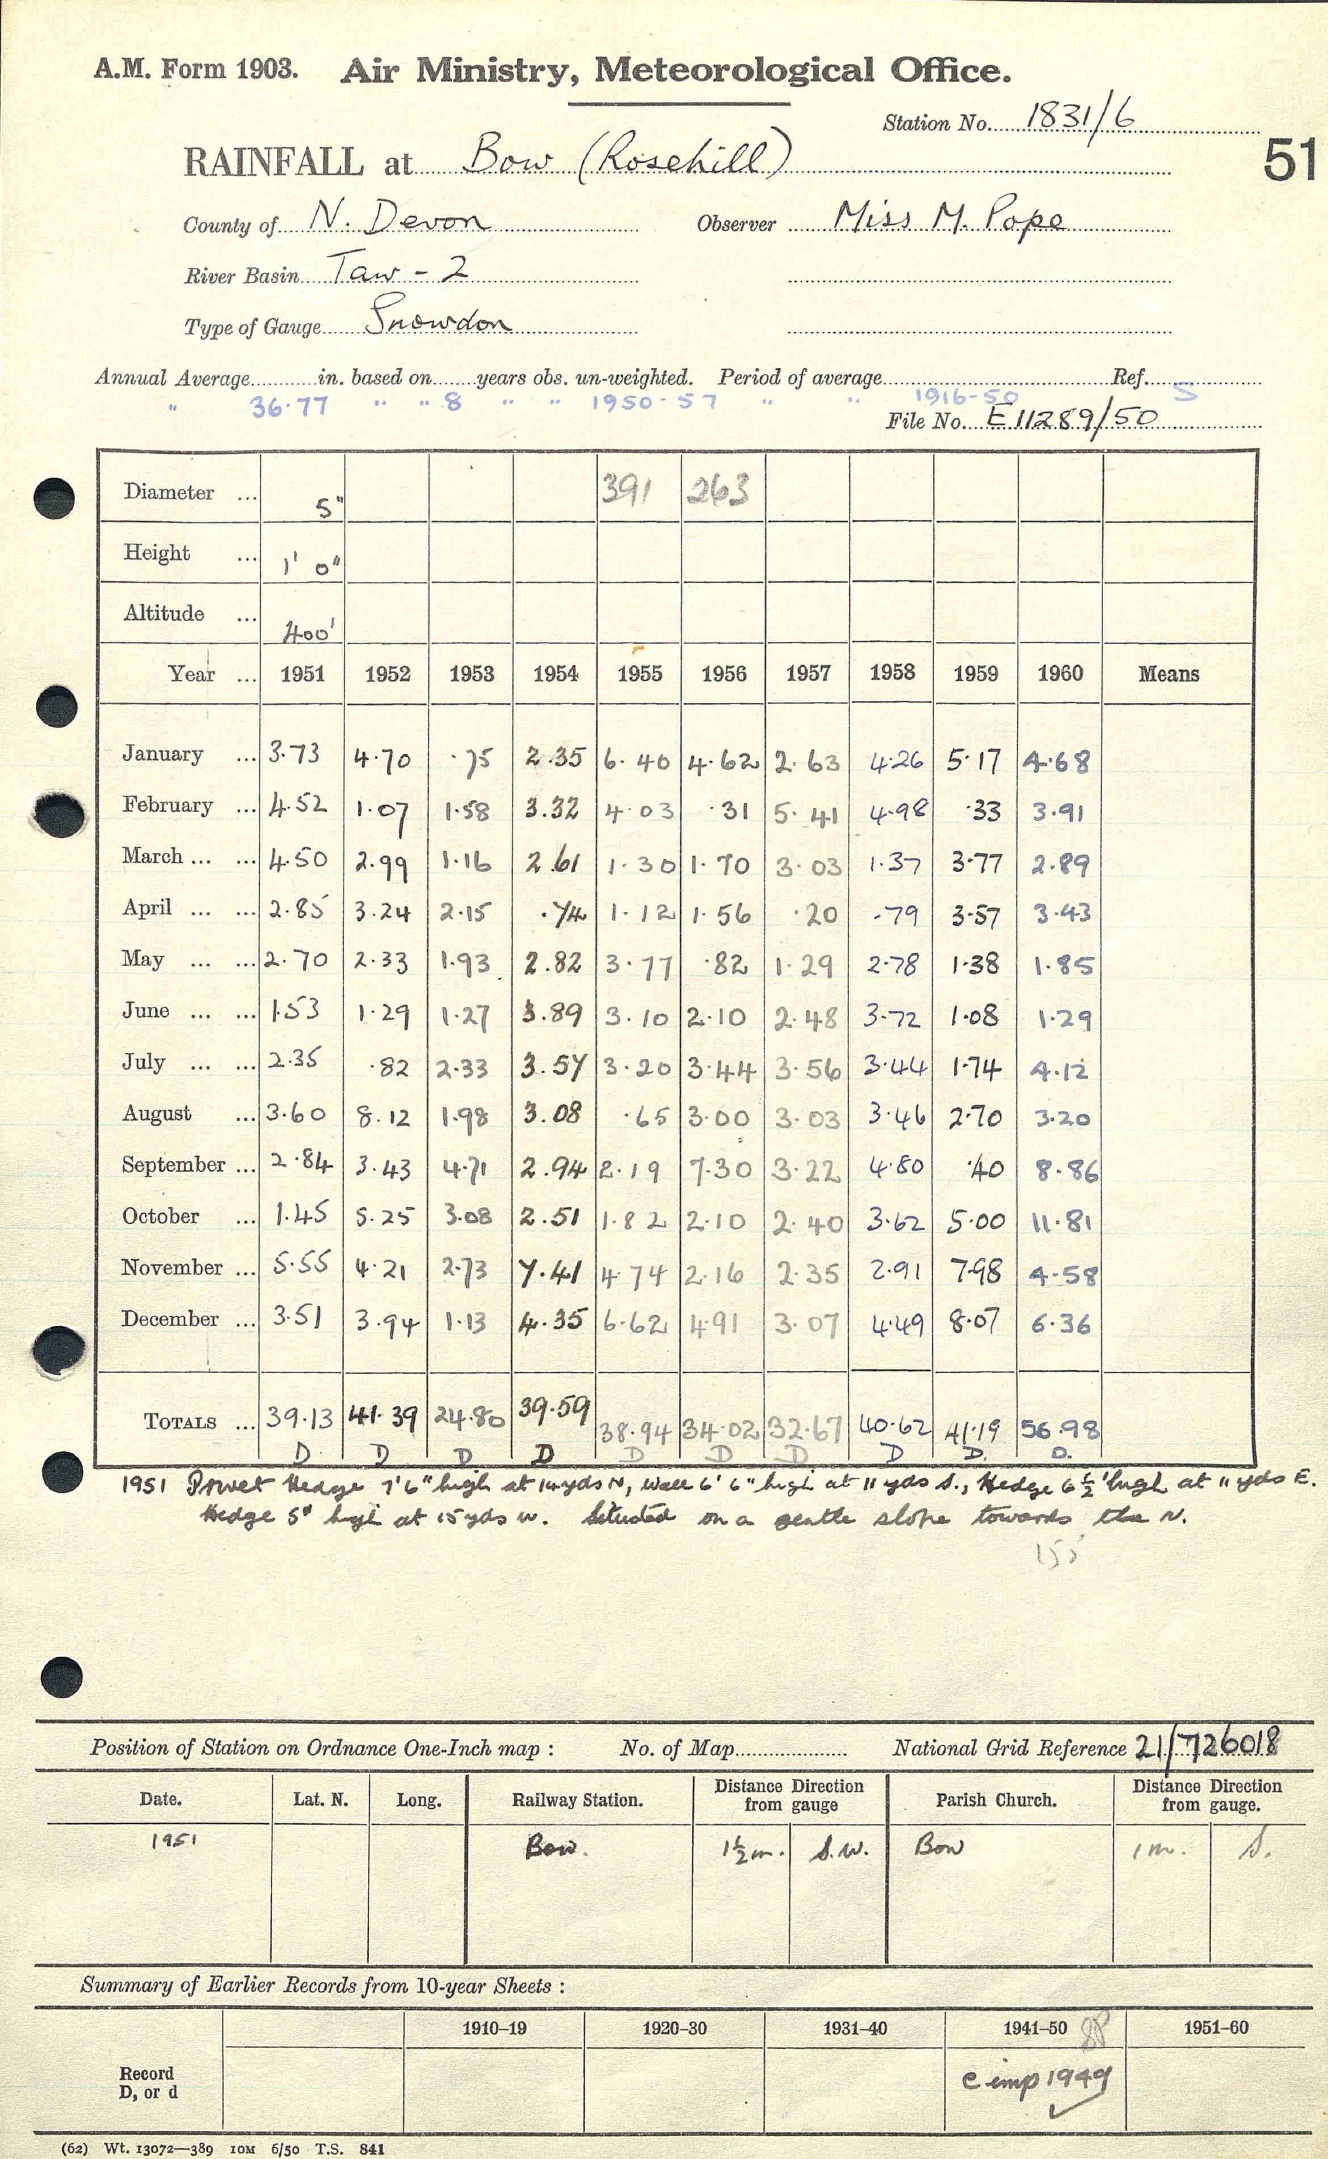 A.M. Form 1903. Air Ministry, Meteorological Office.
Station No. 1831/6
51
RAINFALL at Bow (Rosehill)
County of N. Devon Observer Miss M. Pope
River Basin Taw - 2
Type of Gauge Snowdon
Annual Average in. based on years obs. un-weighted. Period of average Ref.
" 36.77 " " 8 " " 1950-57 " " 1916-50 S
File No. E11289/50
Diameter ... 5" 391 263
Height ... 1' 0"
Altitude ... 400'
Year ... 1951 1952 1953 1954 1955 1956 1957 1958 1959 1960 Means
January ... 3.73 4.70 .75 2.35 6.40 4.62 2.63 4.26 5.17 4.68
February ... 4.52 1.07 1.58 3.32 4.03 .31 5.41 4.98 .33 3.91
March ... ... 4.50 2.99 1.16 2.61 1.30 1.70 3.03 1.37 3.77 2.89
April ... ... 2.85 3.24 2.15 .74 1.12 1.56 .20 .79 3.57 3.43
May ... ... 2.70 2.33 1.93 2.82 3.77 .82 1.29 2.78 1.38 1.85
June ... ... 1.53 1.29 1.27 3.89 3.10 2.10 2.48 3.72 1.08 1.29
July ... ... 2.35 .82 2.33 3.57 3.20 3.44 3.56 3.44 1.74 4.12
August ... 3.60 8.12 1.98 3.08 .65 3.00 3.03 3.46 2.70 3.20
September ... 2.84 3.43 4.71 2.94 2.19 7.30 3.22 4.80 .40 8.86
October ... 1.45 5.25 3.08 2.51 1.82 2.10 2.40 3.62 5.00 11.81
November ... 5.55 4.21 2.73 7.41 4.74 2.16 2.35 2.91 7.98 4.58
December ... 3.51 3.94 1.13 4.35 6.62 4.91 3.07 4.49 8.07 6.36
TOTALS ... 39.13 41.39 24.80 39.59 38.94 34.02 32.67 40.62 41.19 56.98
D D D D D D D D D. D.
1951 Privet Hedge 7'6" high at 14 yds N, Wall 6'6" high at 11 yds S., Hedge 6½' high at 11 yds E.
Hedge 5' high at 15 yds W. Situated on a gentle slope towards the N.
155
Position of Station on Ordnance One-Inch map : No. of Map National Grid Reference 21/726018
Date. Lat. N. Long. Railway Station. Distance Direction from gauge Parish Church. Distance Direction from gauge.
1951 Bow. 1½m. S.W. Bow 1m. S.
Summary of Earlier Records from 10-year Sheets :
1910–19 1920–30 1931–40 1941–50 1951–60
Record D, or d c imp 1949
(62) Wt. 13072—389 10M 6/50 T.S. 841